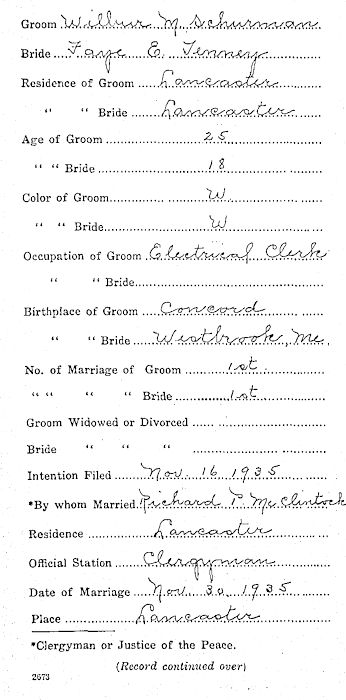 Groom Wilbur M. Schurman
Bride Faye E. Tenney
Residence of Groom Lancaster
" " Bride Lancaster
Age of Groom 25
" " Bride 18
Color of Groom W
" " Bride W
Occupation of Groom Electrical Clerk
" " Bride
Birthplace of Groom Concord
" " Bride Westbrook, Me.
No. of Marriage of Groom 1st
" " " " Bride 1st
Groom Widowed or Divorced
Bride " " "
Intention Filed Nov. 16 1935
*By whom Married Richard P. McClintock
Residence Lancaster
Official Station Clergyman
Date of Marriage Nov. 30 1935
Place Lancaster
*Clergyman or Justice of the Peace.
(Record continued over)
2673